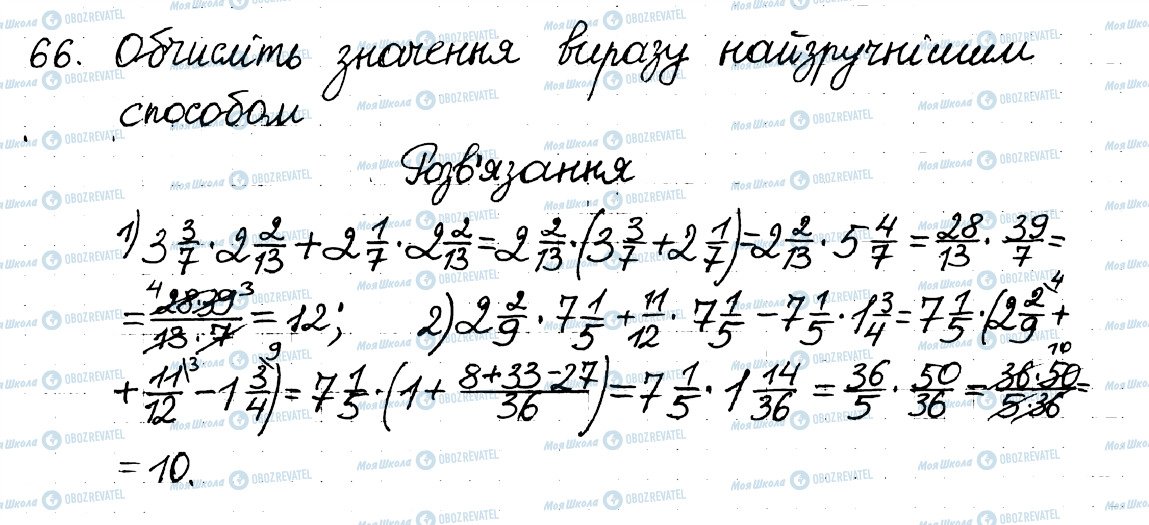 66. Обчисліть значення виразу найзручнішим
способом
Розв'язання
1) 3 3/7 · 2 2/13 + 2 1/7 · 2 2/13 = 2 2/13 · (3 3/7 + 2 1/7) = 2 2/13 · 5 4/7 = 28/13 · 39/7 =
= 28·39/13·7 = 12; 2) 2 2/9 · 7 1/5 + 11/12 · 7 1/5 − 7 1/5 · 1 3/4 = 7 1/5 · (2 2/9 +
+ 11/12 − 1 3/4) = 7 1/5 · (1 + 8+33−27/36) = 7 1/5 · 1 14/36 = 36/5 · 50/36 = 36·50/5·36 =
= 10.